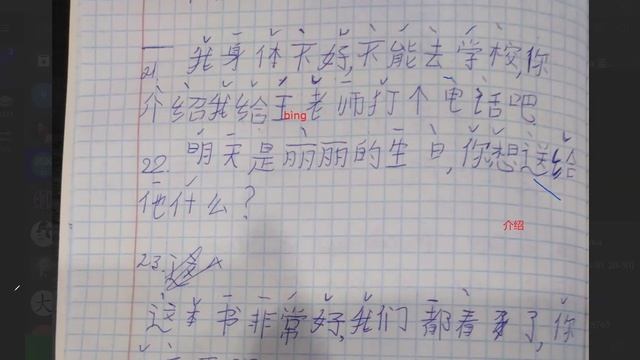 21. 我身体不好,不能去学校,你
介绍我给王老师打个电话吧
bing
22. 明天是丽丽的生日,你想送给
他什么?
介绍
23.
这本书非常好,我们都看了,你